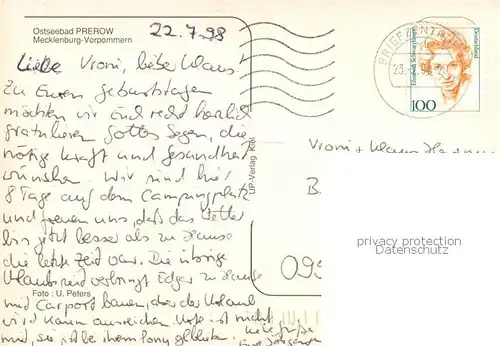 Ostseebad PREROW
Mecklenburg-Vorpommern
22.7.98
Liebe Vroni, lieber Klaus!
Zu Euren Geburtstagen
möchten wir Euch recht herzlich
gratulieren Gottes Segen, die
nötige Kraft und Gesundheit
wünschen. Wir sind hier
8 Tage auf dem Campingplatz
und freuen uns, daß das Wetter
bis jetzt besser als zu Hause
die letzte Zeit war. Die übrige
Urlaubszeit verbringt Edgar zu Hause
mit Carport bauen, aber der Urlaub
wird kaum ausreichen. ist nicht
mit, sie ist bei ihrem Pony geblieben.
Liebe Grüße
Foto: U. Peters
UP-Verlag Kiel
BRIEFZENTRUM
23.
Deutschland
100
Vroni + Klaus
B
095
privacy protection
Datenschutz